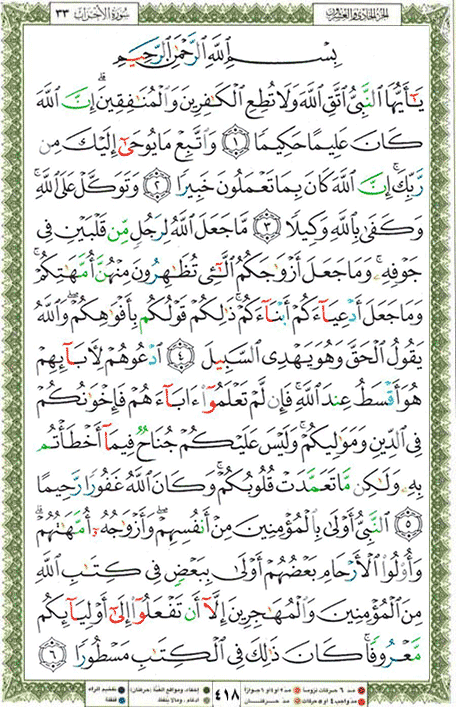 الجزء الحادي والعشرون
سورة الأحزاب ٣٣
بِسْمِ اللَّهِ الرَّحْمَٰنِ الرَّحِيمِ
يَا أَيُّهَا النَّبِيُّ اتَّقِ اللَّهَ وَلَا تُطِعِ الْكَافِرِينَ وَالْمُنَافِقِينَ ۗ إِنَّ اللَّهَ
كَانَ عَلِيمًا حَكِيمًا ١ وَاتَّبِعْ مَا يُوحَىٰ إِلَيْكَ مِن
رَّبِّكَ ۚ إِنَّ اللَّهَ كَانَ بِمَا تَعْمَلُونَ خَبِيرًا ٢ وَتَوَكَّلْ عَلَى اللَّهِ ۚ
وَكَفَىٰ بِاللَّهِ وَكِيلًا ٣ مَّا جَعَلَ اللَّهُ لِرَجُلٍ مِّن قَلْبَيْنِ فِي
جَوْفِهِ ۚ وَمَا جَعَلَ أَزْوَاجَكُمُ اللَّائِي تُظَاهِرُونَ مِنْهُنَّ أُمَّهَاتِكُمْ ۚ
وَمَا جَعَلَ أَدْعِيَاءَكُمْ أَبْنَاءَكُمْ ۚ ذَٰلِكُمْ قَوْلُكُم بِأَفْوَاهِكُمْ ۖ وَاللَّهُ
يَقُولُ الْحَقَّ وَهُوَ يَهْدِي السَّبِيلَ ٤ ادْعُوهُمْ لِآبَائِهِمْ
هُوَ أَقْسَطُ عِندَ اللَّهِ ۚ فَإِن لَّمْ تَعْلَمُوا آبَاءَهُمْ فَإِخْوَانُكُمْ
فِي الدِّينِ وَمَوَالِيكُمْ ۚ وَلَيْسَ عَلَيْكُمْ جُنَاحٌ فِيمَا أَخْطَأْتُم
بِهِ وَلَٰكِن مَّا تَعَمَّدَتْ قُلُوبُكُمْ ۚ وَكَانَ اللَّهُ غَفُورًا رَّحِيمًا
٥ النَّبِيُّ أَوْلَىٰ بِالْمُؤْمِنِينَ مِنْ أَنفُسِهِمْ ۖ وَأَزْوَاجُهُ أُمَّهَاتُهُمْ ۗ
وَأُولُو الْأَرْحَامِ بَعْضُهُمْ أَوْلَىٰ بِبَعْضٍ فِي كِتَابِ اللَّهِ
مِنَ الْمُؤْمِنِينَ وَالْمُهَاجِرِينَ إِلَّا أَن تَفْعَلُوا إِلَىٰ أَوْلِيَائِكُم
مَّعْرُوفًا ۚ كَانَ ذَٰلِكَ فِي الْكِتَابِ مَسْطُورًا ٦
٤١٨